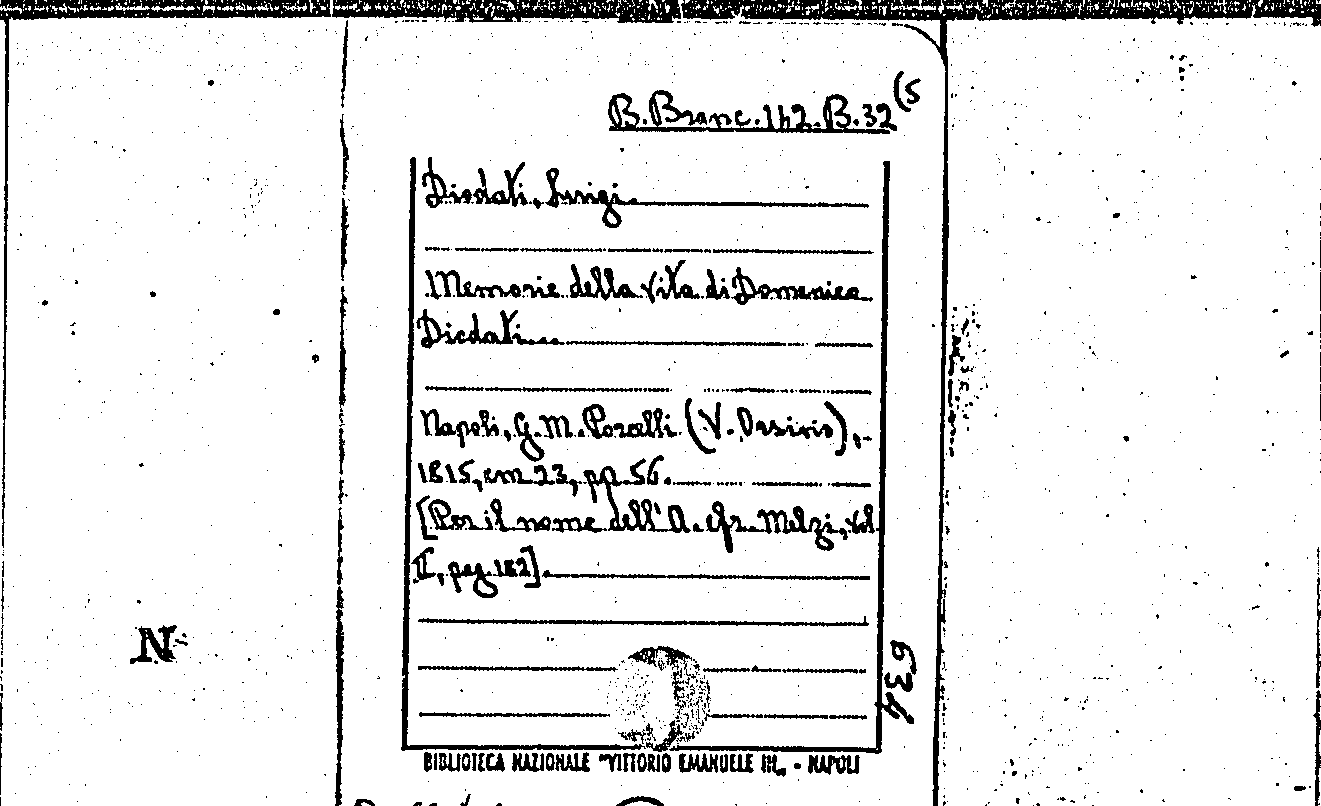 B. Branc. 142. B. 32 (5
Diodati, Luigi.
Memorie della vita di Domenico
Diodati...
Napoli, G. M. Porcelli (V. Orsino),
1815, cm 23, pp. 56.
[Per il nome dell' A. cfr. Melzi, vol.
II, pag. 182].
N
634
BIBLIOTECA NAZIONALE "VITTORIO EMANUELE III„ - NAPOLI